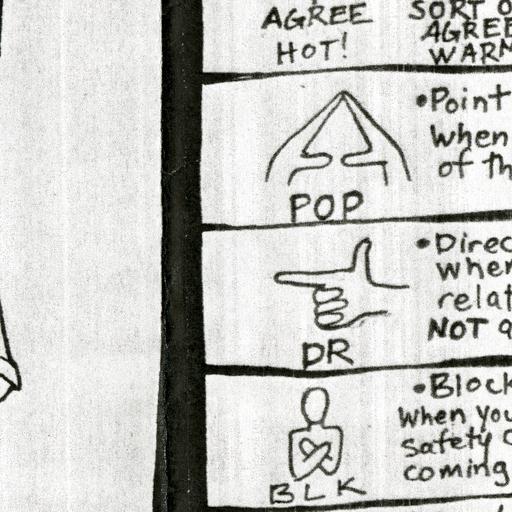 AGREE
HOT!
SORT O
AGREE
WARM
•Point
when
of th
POP
•Direc
when
relat
NOT a
DR
•Block
when you
safety c
coming
BLK